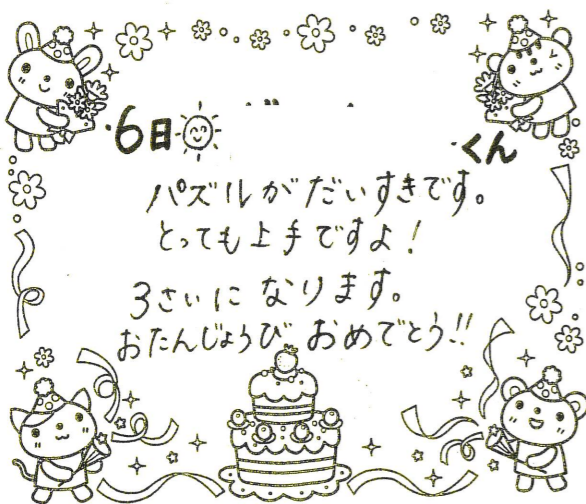 6日 くん
パズルがだいすきです。
とっても上手ですよ!
3さいに なります。
おたんじょうび おめでとう!!